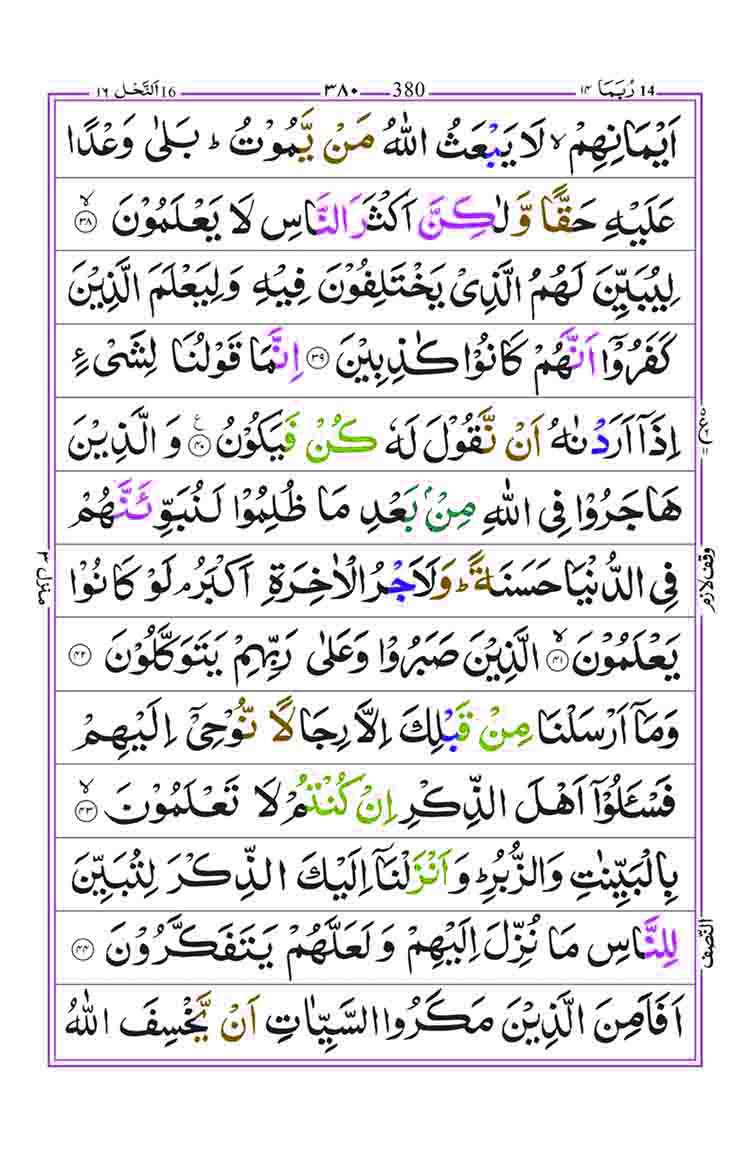 رُبَمَا 14 ١٤ 380 ٣٨٠ اَلنَّحْل 16 ١٦
اَيْمَانِهِمْ ۙ لَا يَبْعَثُ اللّٰهُ مَنْ يَّمُوْتُ ؕ بَلٰى وَعْدًا
عَلَيْهِ حَقًّا وَّ لٰكِنَّ اَكْثَرَ النَّاسِ لَا يَعْلَمُوْنَ ۙ ٣٨
لِيُبَيِّنَ لَهُمُ الَّذِىْ يَخْتَلِفُوْنَ فِيْهِ وَلِيَعْلَمَ الَّذِيْنَ
كَفَرُوْۤا اَنَّهُمْ كَانُوْا كٰذِبِيْنَ ٣٩ اِنَّمَا قَوْلُنَا لِشَىْءٍ
اِذَاۤ اَرَدْنٰهُ اَنْ نَّقُوْلَ لَهٗ كُنْ فَيَكُوْنُ ٤٠ ع وَ الَّذِيْنَ
هَاجَرُوْا فِى اللّٰهِ مِنْۢ بَعْدِ مَا ظُلِمُوْا لَنُبَوِّئَنَّهُمْ
فِى الدُّنْيَا حَسَنَةً ؕ وَلَاَجْرُ الْاٰخِرَةِ اَكْبَرُ ۘ لَوْ كَانُوْا
يَعْلَمُوْنَ ۙ ٤١ الَّذِيْنَ صَبَرُوْا وَعَلٰى رَبِّهِمْ يَتَوَكَّلُوْنَ ٤٢
وَمَاۤ اَرْسَلْنَا مِنْ قَبْلِكَ اِلَّا رِجَالًا نُّوْحِىْۤ اِلَيْهِمْ
فَسْـَٔلُوْۤا اَهْلَ الذِّكْرِ اِنْ كُنْتُمْ لَا تَعْلَمُوْنَ ۙ ٤٣
بِالْبَيِّنٰتِ وَالزُّبُرِ ؕ وَ اَنْزَلْنَاۤ اِلَيْكَ الذِّكْرَ لِتُبَيِّنَ
لِلنَّاسِ مَا نُزِّلَ اِلَيْهِمْ وَ لَعَلَّهُمْ يَتَفَكَّرُوْنَ ٤٤
اَفَاَمِنَ الَّذِيْنَ مَكَرُوا السَّيِّاٰتِ اَنْ يَّخْسِفَ اللّٰهُ
وقف لازم
النّصف
منزل ٣